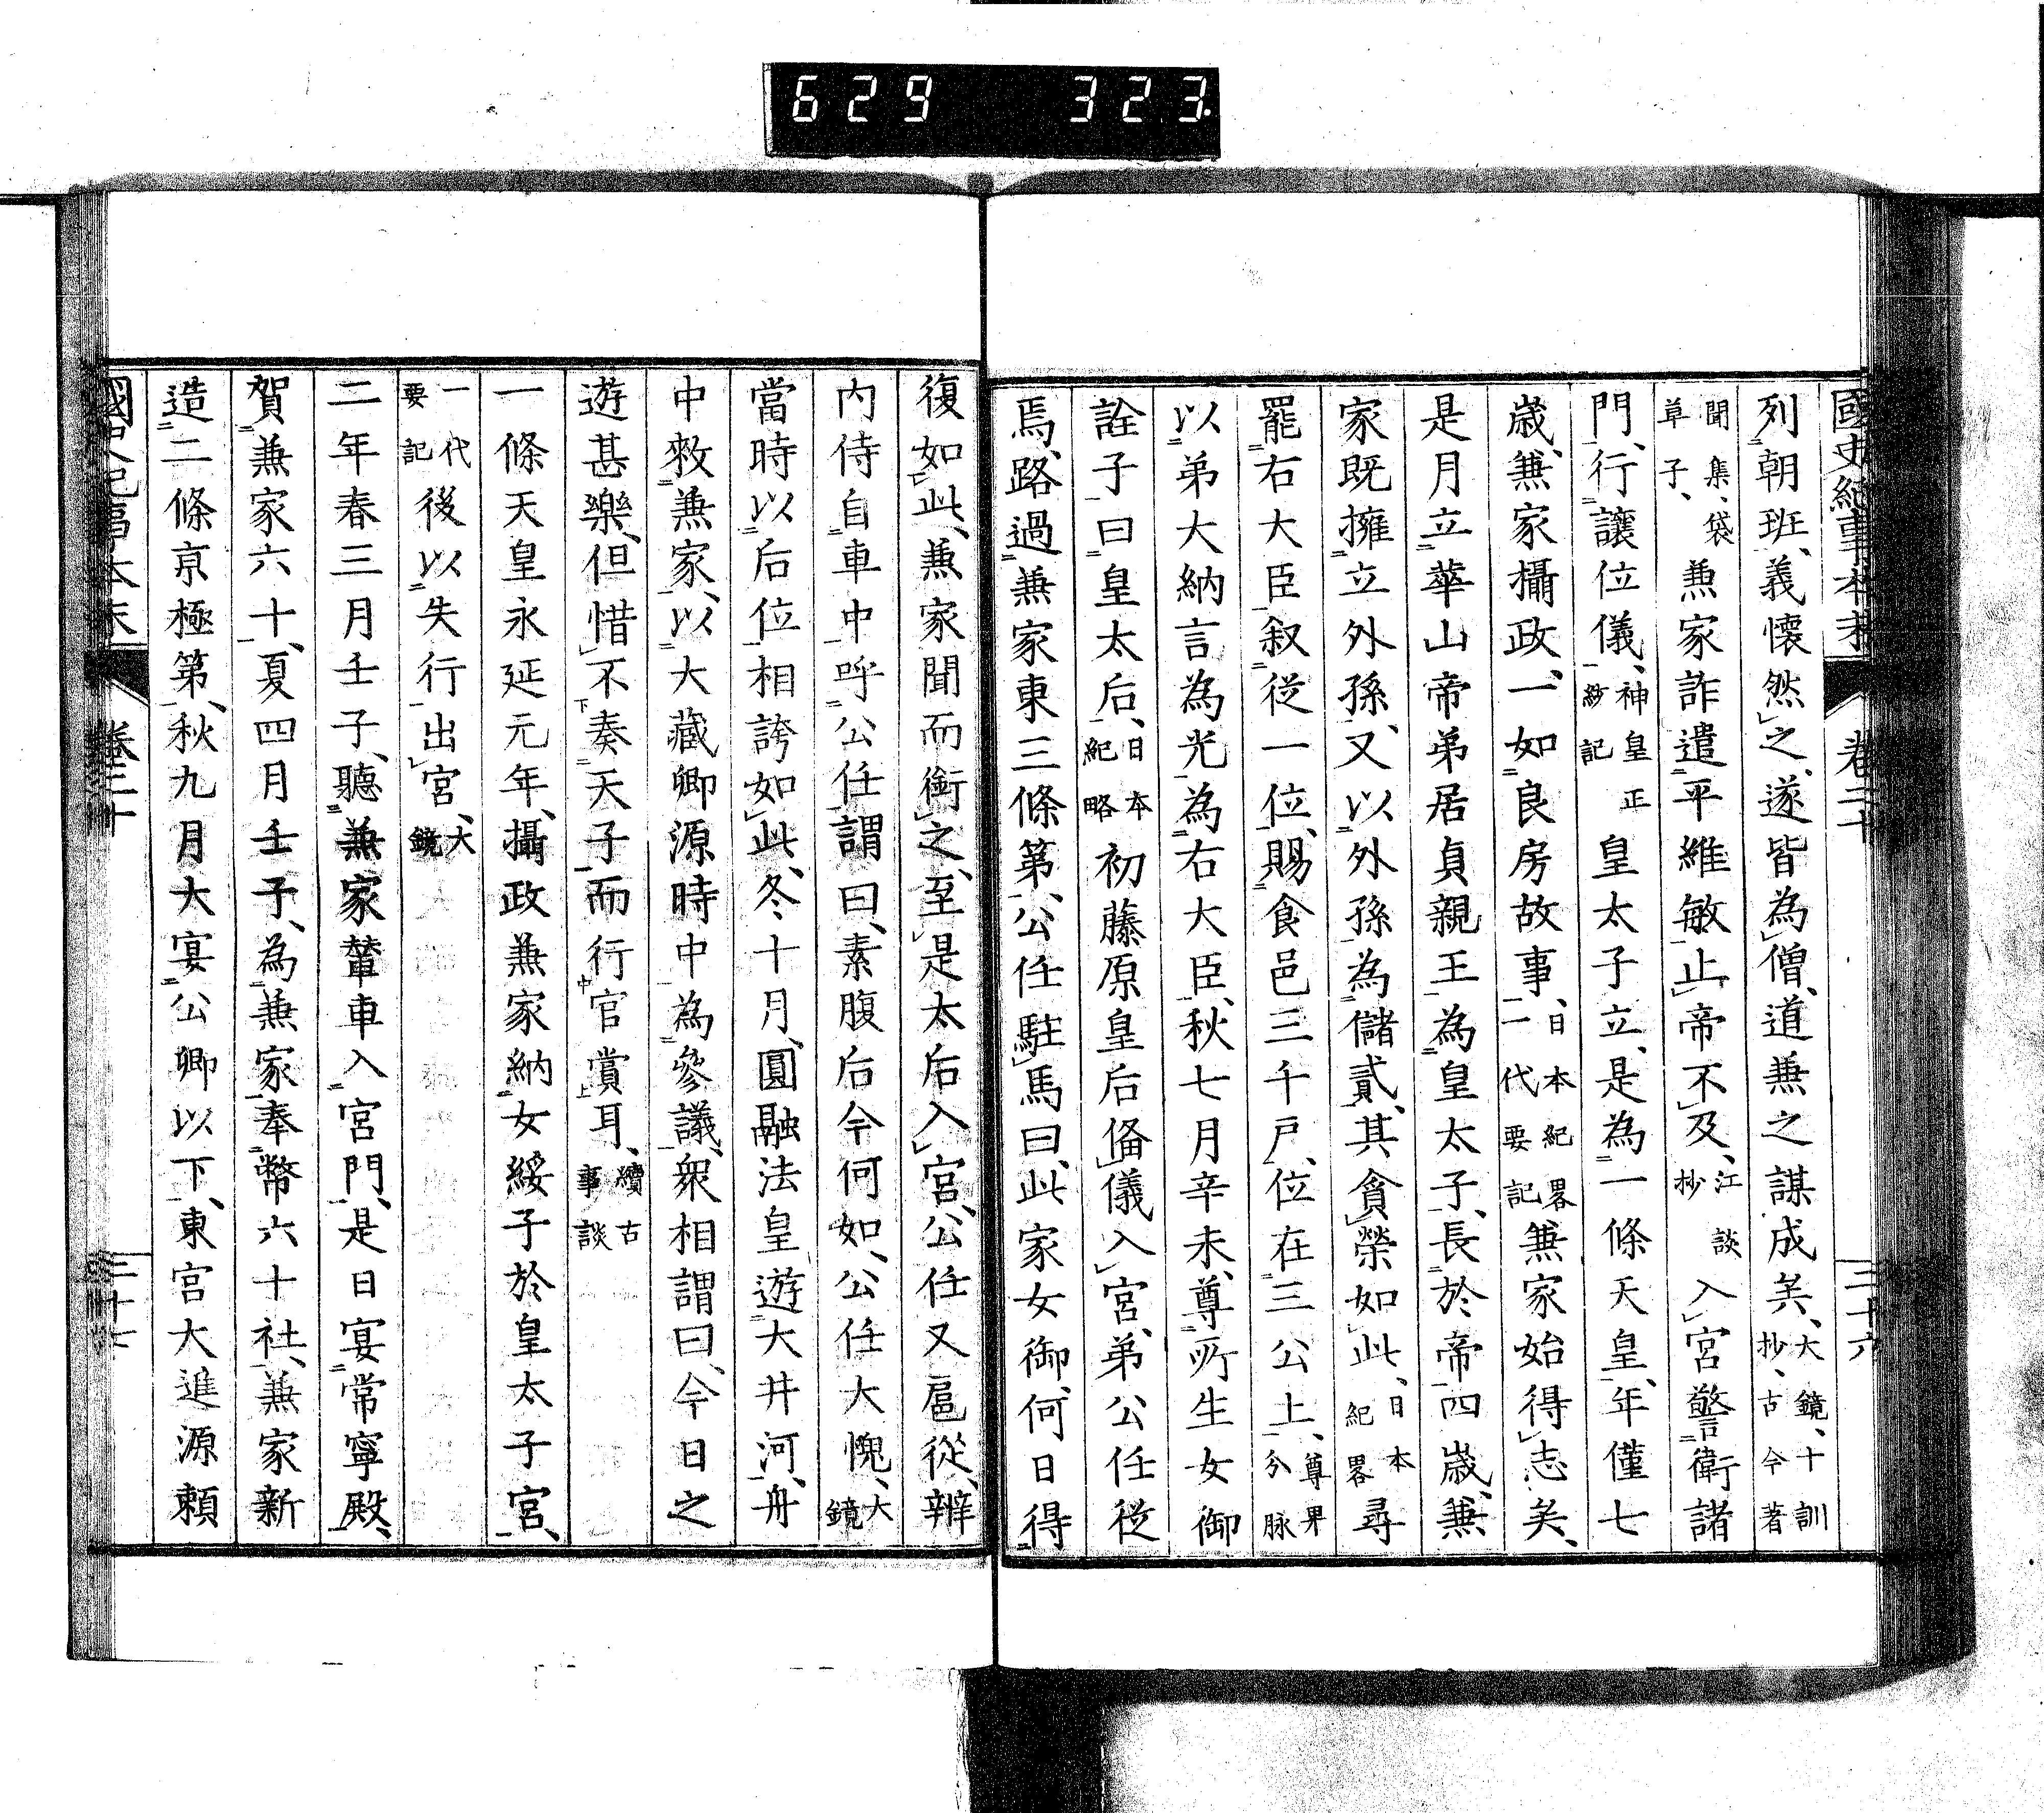 629 323.
國史紀事本末 卷二十 三十六
列朝班、義懐然之、遂皆為僧、道兼之謀成矣、大鏡、十訓抄、古今著
聞集、袋草子、兼家詐遣平維敏止帝不及、江談抄入宮警衛諸
門、行讓位儀、神皇正紗記皇太子立、是為一條天皇、年僅七
歳、兼家攝政、一如良房故事、日本紀畧一代要記兼家始得志矣、
是月立華山帝弟居貞親王為皇太子、長於帝四歳、兼
家既擁立外孫、又以外孫為儲貳、其貪榮如此、日本紀畧尋
罷右大臣、叙從一位、賜食邑三千戸、位在三公上、尊卑分脉
以弟大納言為光為右大臣、秋七月辛未、尊所生女御
詮子曰皇太后、日本紀略初藤原皇后俻儀入宮、弟公任從
焉、路過兼家東三條第、公任駐馬曰、此家女御、何日得
復如此、兼家聞而銜之、至是太后入宮、公任又扈從、辨
内侍自車中呼公任謂曰、素腹后今何如、公任大愧、大鏡
當時以后位相誇如此、冬十月、圓融法皇遊大井河、舟
中敕兼家、以大藏卿源時中為參議、衆相謂曰、今日之
遊甚樂、但惜不奏天子而行官賞耳、續古事談
一條天皇永延元年、攝政兼家納女綏子於皇太子宮、
一代要記後以失行出宮、大鏡
二年春三月壬子、聽兼家輦車入宮門、是日宴常寧殿、
賀兼家六十、夏四月壬子、為兼家奉幣六十社、兼家新
造二條京極第、秋九月大宴公卿以下、東宮大進源頼
國史紀事本末 卷二十 三十七